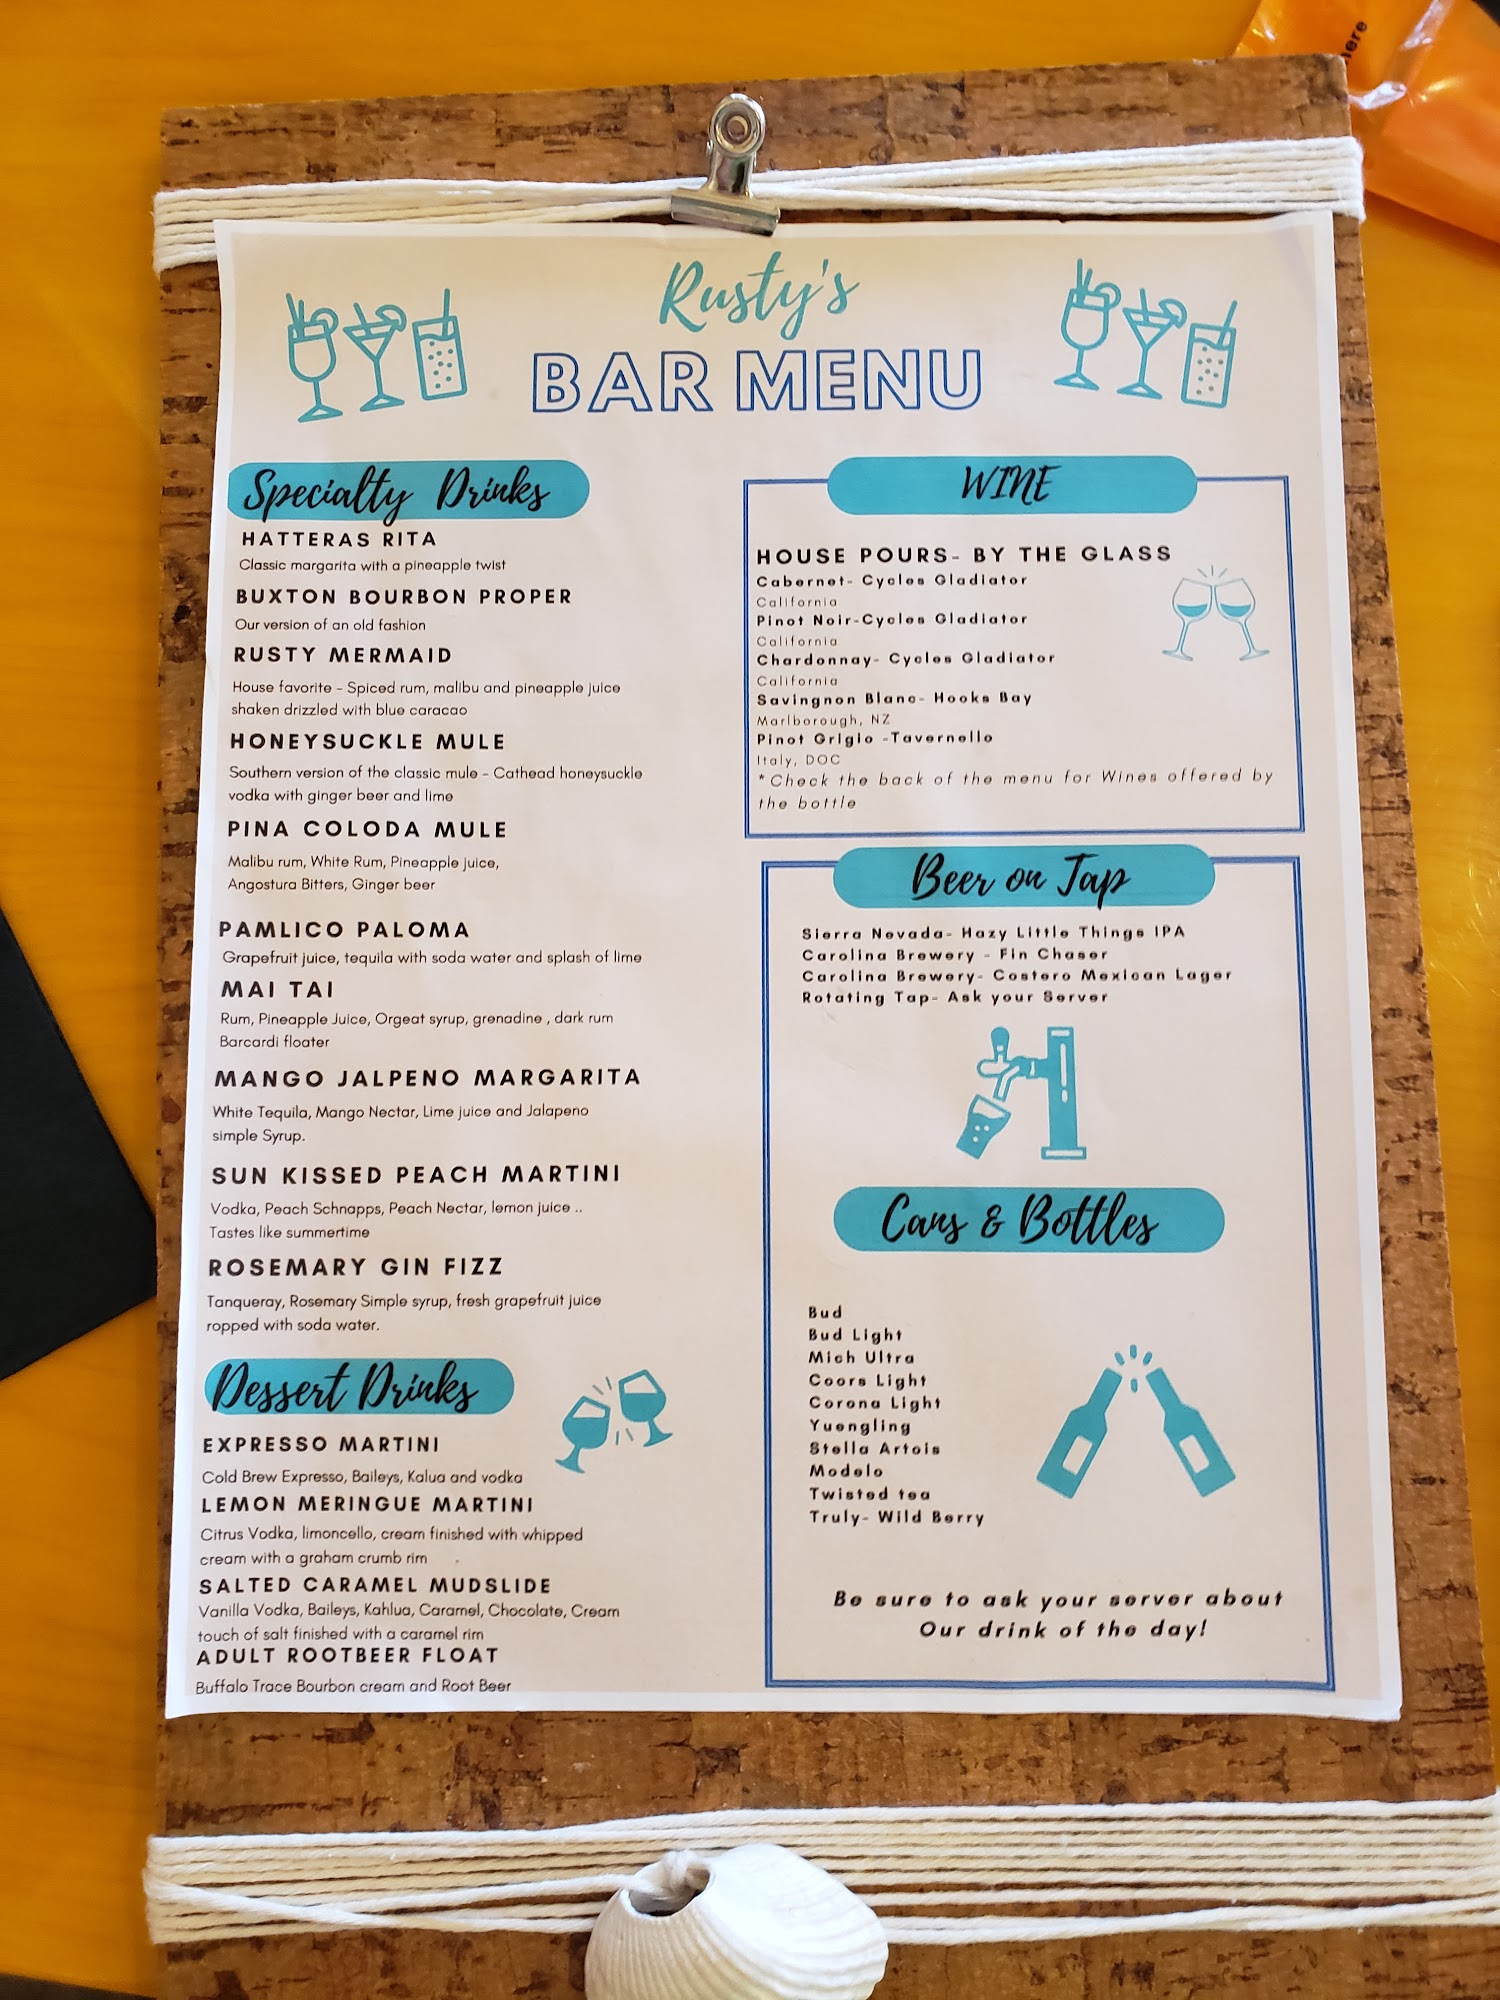 here
Rusty's
BAR MENU
Specialty Drinks
HATTERAS RITA
Classic margarita with a pineapple twist
BUXTON BOURBON PROPER
Our version of an old fashion
RUSTY MERMAID
House favorite - Spiced rum, malibu and pineapple juice
shaken drizzled with blue caracao
HONEYSUCKLE MULE
Southern version of the classic mule - Cathead honeysuckle
vodka with ginger beer and lime
PINA COLODA MULE
Malibu rum, White Rum, Pineapple juice,
Angostura Bitters, Ginger beer
PAMLICO PALOMA
Grapefruit juice, tequila with soda water and splash of lime
MAI TAI
Rum, Pineapple Juice, Orgeat syrup, grenadine , dark rum
Barcardi floater
MANGO JALPENO MARGARITA
White Tequila, Mango Nectar, Lime juice and Jalapeno
simple Syrup.
SUN KISSED PEACH MARTINI
Vodka, Peach Schnapps, Peach Nectar, lemon juice ..
Tastes like summertime
ROSEMARY GIN FIZZ
Tanqueray, Rosemary Simple syrup, fresh grapefruit juice
ropped with soda water.
Dessert Drinks
EXPRESSO MARTINI
Cold Brew Expresso, Baileys, Kalua and vodka
LEMON MERINGUE MARTINI
Citrus Vodka, limoncello, cream finished with whipped
cream with a graham crumb rim
SALTED CARAMEL MUDSLIDE
Vanilla Vodka, Baileys, Kahlua, Caramel, Chocolate, Cream
touch of salt finished with a caramel rim
ADULT ROOTBEER FLOAT
Buffalo Trace Bourbon cream and Root Beer
WINE
HOUSE POURS- BY THE GLASS
Cabernet- Cycles Gladiator
California
Pinot Noir-Cycles Gladiator
California
Chardonnay- Cycles Gladiator
California
Savingnon Blanc- Hooks Bay
Marlborough, NZ
Pinot Grigio -Tavernello
Italy, DOC
*Check the back of the menu for Wines offered by
the bottle
Beer on Tap
Sierra Nevada- Hazy Little Things IPA
Carolina Brewery - Fin Chaser
Carolina Brewery- Costero Mexican Lager
Rotating Tap- Ask your Server
Cans & Bottles
Bud
Bud Light
Mich Ultra
Coors Light
Corona Light
Yuengling
Stella Artois
Modelo
Twisted tea
Truly- Wild Berry
Be sure to ask your server about
Our drink of the day!